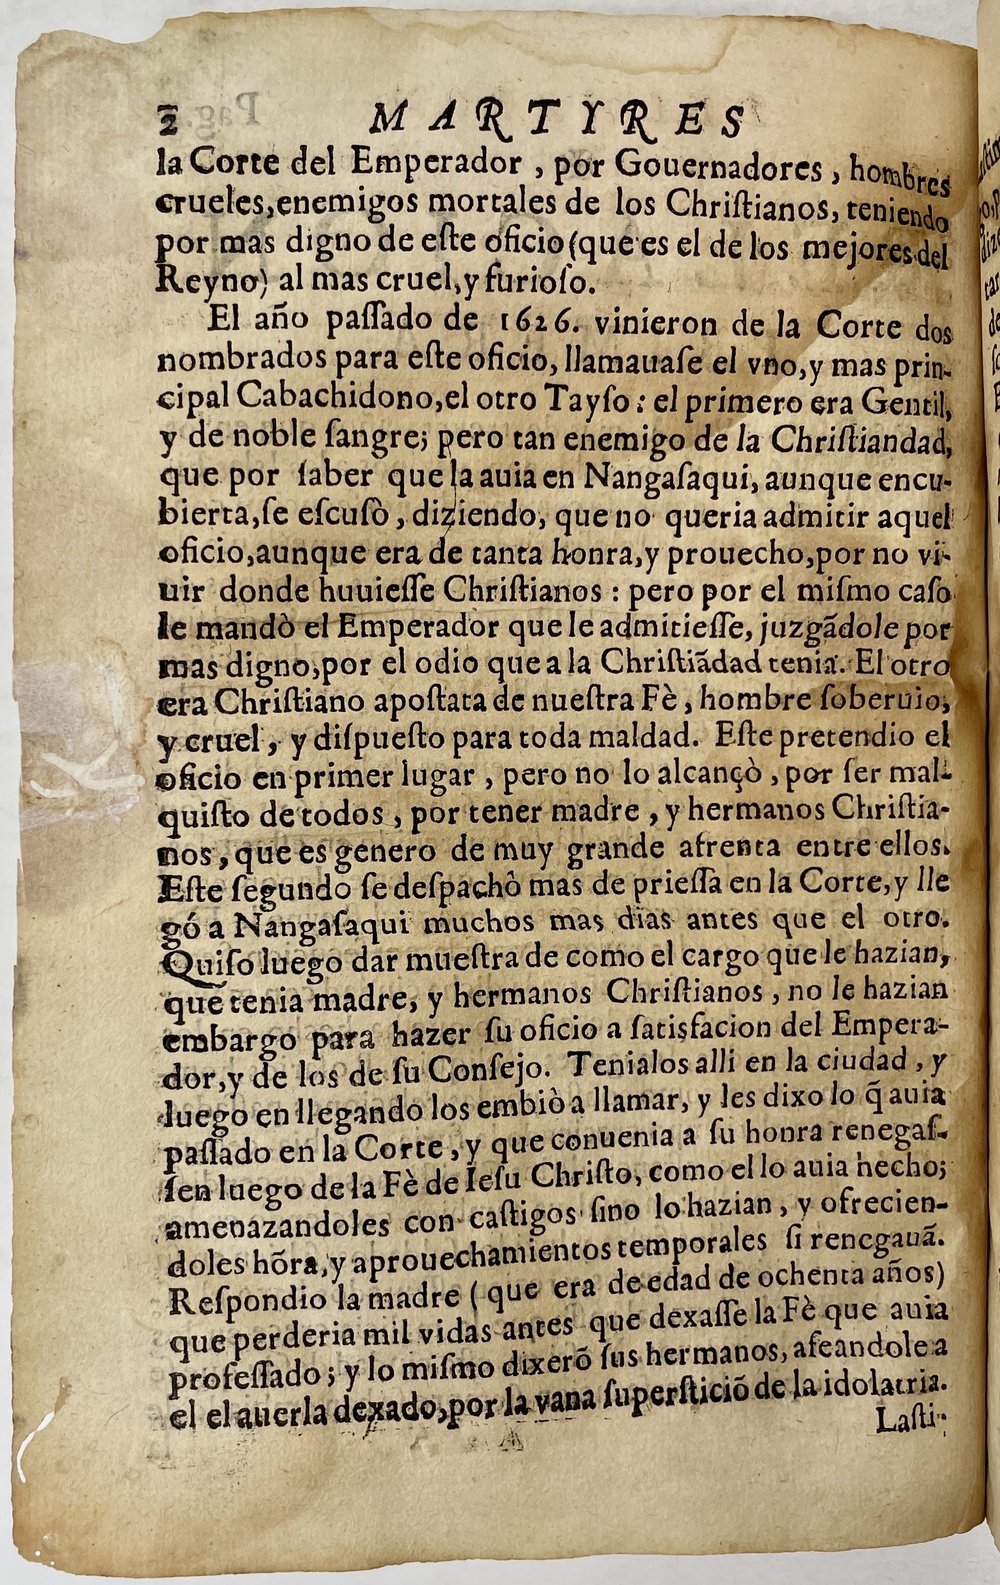 2 MARTYRES
la Corte del Emperador, por Gouernadores, hombres
crueles, enemigos mortales de los Chriſtianos, teniendo
por mas digno de eſte oficio (que es el de los mejores del
Reyno) al mas cruel, y furioſo.
El año paſſado de 1626. vinieron de la Corte dos
nombrados para eſte oficio, llamauaſe el vno, y mas prin-
cipal Cabachidono, el otro Tayſo: el primero era Gentil,
y de noble ſangre; pero tan enemigo de la Chriſtiandad,
que por ſaber que la auia en Nangaſaqui, aunque encu-
bierta, ſe eſcusò, diziendo, que no queria admitir aquel
oficio, aunque era de tanta honra, y prouecho, por no vi-
uir donde huuieſſe Chriſtianos: pero por el miſmo caſo
le mandò el Emperador que le admitieſſe, juzgãdole por
mas digno, por el odio que a la Chriſtiãdad tenia. El otro
era Chriſtiano apoſtata de nueſtra Fè, hombre ſoberuio,
y cruel, y diſpueſto para toda maldad. Eſte pretendio el
oficio en primer lugar, pero no lo alcançò, por ſer mal-
quiſto de todos, por tener madre, y hermanos Chriſtia-
nos, que es genero de muy grande afrenta entre ellos.
Eſte ſegundo ſe deſpachò mas de prieſſa en la Corte, y lle
gó a Nangaſaqui muchos mas dias antes que el otro.
Quiſo luego dar mueſtra de como el cargo que le hazian,
que tenia madre, y hermanos Chriſtianos, no le hazian
embargo para hazer ſu oficio a ſatisfacion del Empera-
dor, y de los de ſu Conſejo. Tenialos alli en la ciudad, y
luego en llegando los embiò a llamar, y les dixo lo q̃ auia
paſſado en la Corte, y que conuenia a ſu honra renegaſ-
ſen luego de la Fè de Ieſu Chriſto, como el lo auia hecho;
amenazandoles con caſtigos ſino lo hazian, y ofrecien-
doles hõra, y aprouechamientos temporales ſi renegauã.
Reſpondio la madre (que era de edad de ochenta años)
que perderia mil vidas antes que dexaſſe la Fè que auia
profeſſado; y lo miſmo dixerõ ſus hermanos, afeandole a
el el auerla dexado, por la vana ſuperſticiõ de la idolatria.
Laſti-